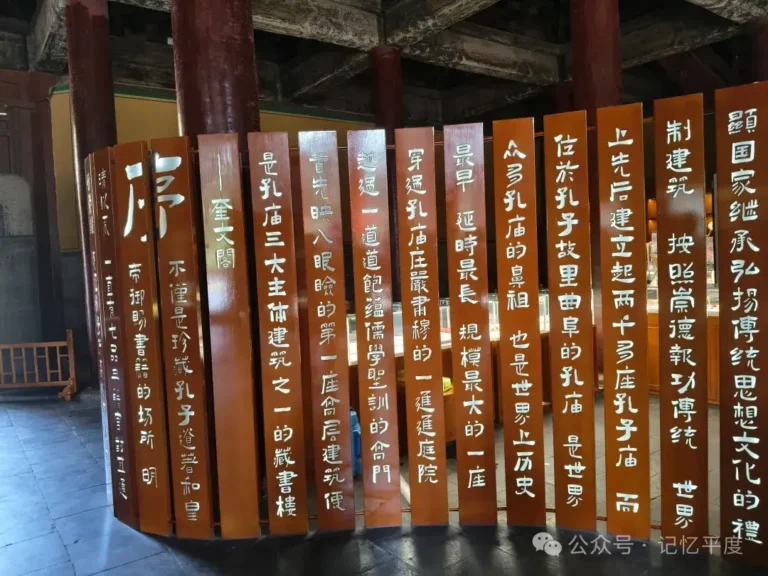 顯国家继承弘揚傳统思想文化的禮
制建筑 按照崇德報功傳統 世界
上先后建立起两千多座孔子庙 而
位於孔子故里曲阜的孔庙 是世界
众多孔庙的鼻祖 也是世界上历史
最早 延時最長 規模最大的一座
穿過孔庙庄嚴肅穆的一進進庭院
邁過一道道飽蕴儒學聖訓的高門
首先映入眼瞼的第一座高层建筑便
是孔庙三大主体建筑之一的藏書楼
——奎文閣
序
不僅是珍藏孔子遺著和皇
帝御賜書籍的场所 明
公众号·记忆平度